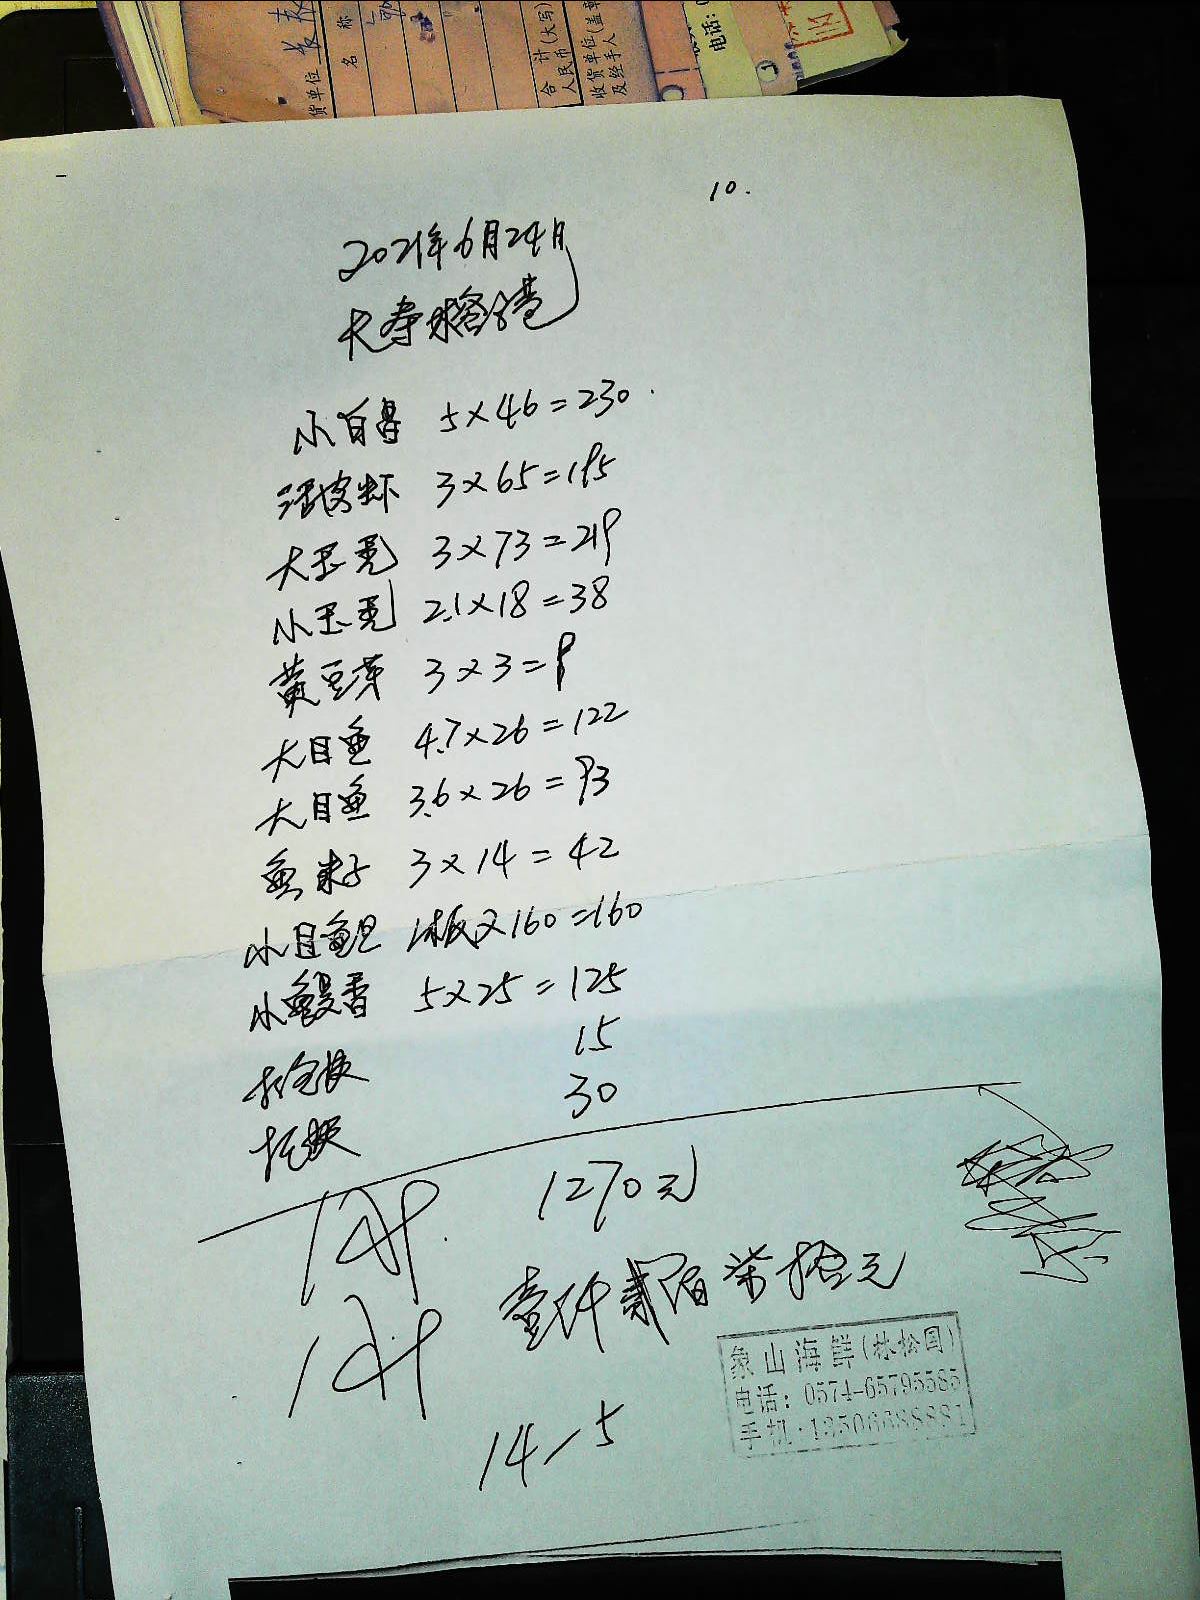 货单位
名 称
合 计(大写)
人民币
收货单位(盖章)
及经手人
电话:
10.
2021年6月24日
小白鼻 5×46=230.
活皮虾 3×65=195
大玉秃 3×73=219
小玉秃 2.1×18=38
黄豆芽 3×3=9
大目鱼 4.7×26=122
大目鱼 3.6×26=93
鱼籽 3×14=42
小目鱼 1板×160=160
小鳗香 5×25=125
15
30
1270元
壹仟贰佰柒拾元
象山海鲜(林松国)
电话: 0574-65795585
手机:13506688881
14-5